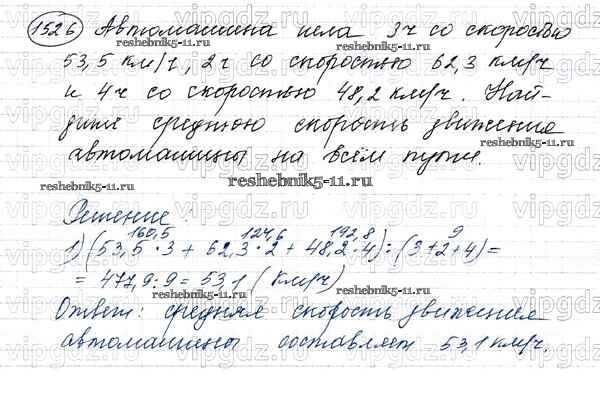 1526 Автомашина шла 3ч со скоростью
53,5 км/ч, 2ч со скоростью 62,3 км/ч
и 4ч со скоростью 48,2 км/ч. Най-
дите среднюю скорость движения
автомашины на всём пути.
reshebnik5-11.ru
Решение:
160,5 124,6 192,8 9
1) (53,5·3 + 62,3·2 + 48,2·4) : (3+2+4) =
= 477,9:9 = 53,1 (км/ч)
Ответ: средняя скорость движения
автомашины составляет 53,1 км/ч.